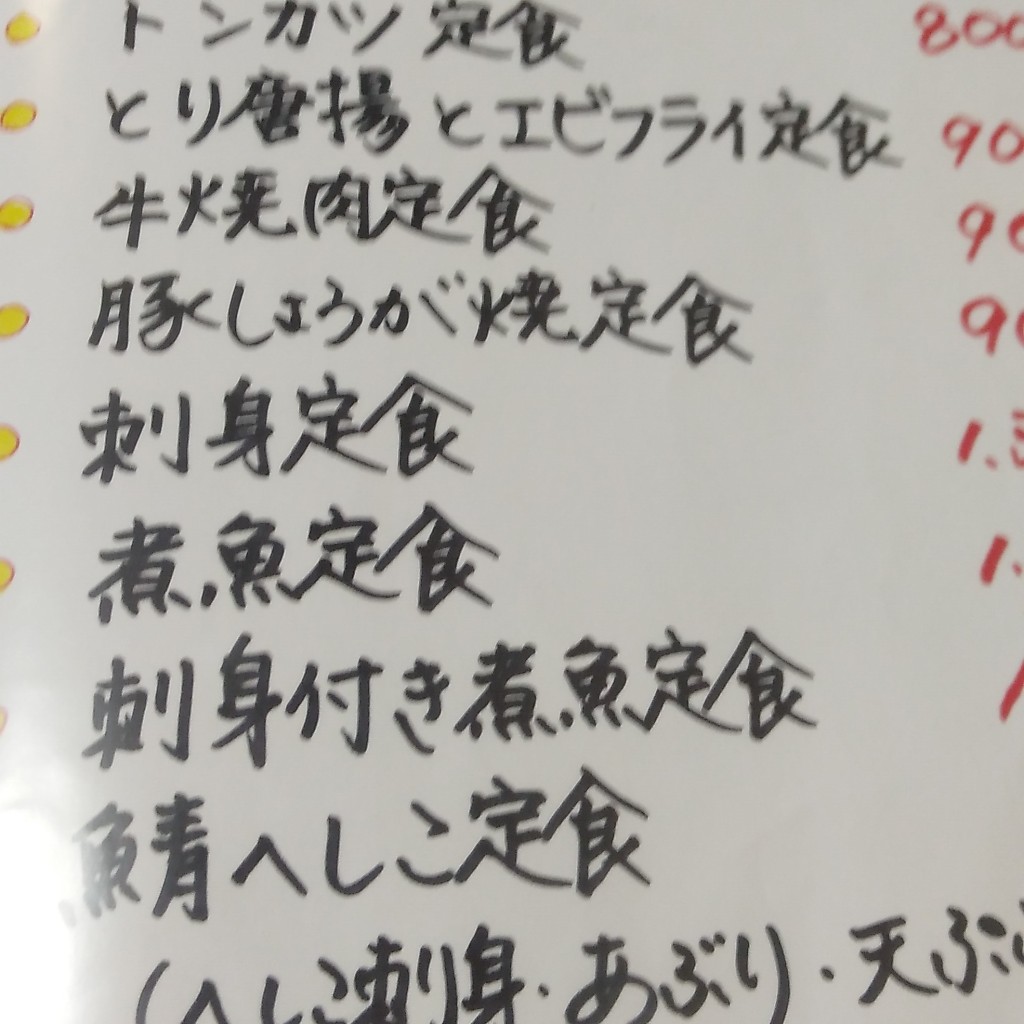 トンカツ定食 800
とり唐揚とエビフライ定食 90
牛焼肉定食 90
豚しょうが焼定食 90
刺身定食 1.
煮魚定食 1.
刺身付き煮魚定食
鯖へしこ定食
(へしこ刺身・あぶり)・天ぷ